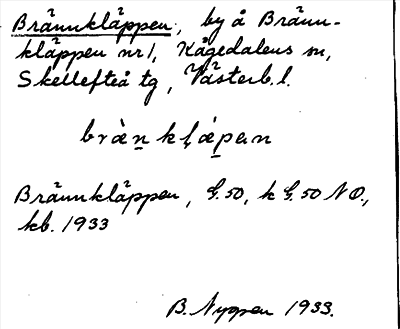 Brännkläppen, by å Bränn-
kläppen nr 1, Kågedalens sn,
Skellefteå tg, Västerb. l.
bràn̲ kḷáp̲ən
Brännkläppen, G. 50, k G. 50 NO.,
kb. 1933
B. Nygren 1933.